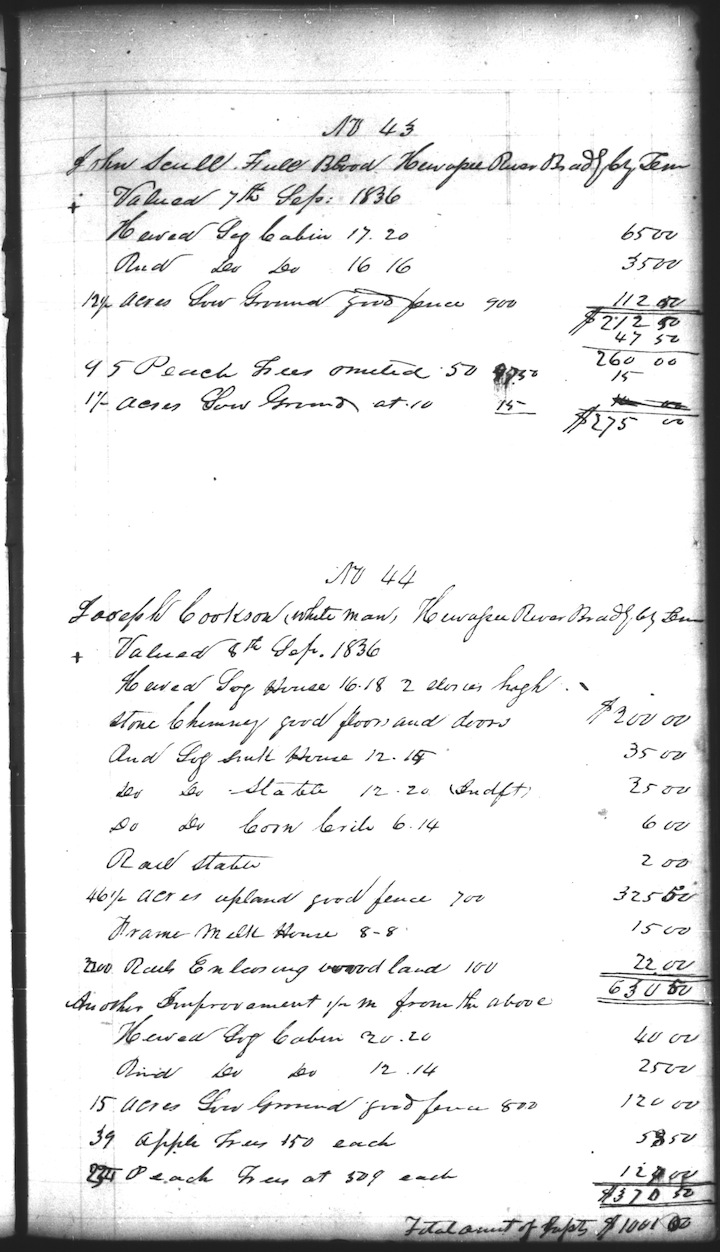 No 43
John Scull Full Blood Hewassee River Bradf Cty Tenn
+ Valued 7th Sep: 1836
Hewed Log Cabin 17.20 6500
Rnd Do Do 16 16 3500
12½ Acres Low Ground good fence 900 112 50
$212 50
47 50
260 00
95 Peach Trees omited 50 47.50 15
1½ Acres Low Ground at 10 15
$275 00
No 44
Joseph Cookson (white man) Hewassee River Bradf Cty Tenn
+ Valued 8th Sep. 1836
Hewed Log House 16.18 2 stories high
stone Chimney good floors and doors $200 00
Rnd Log Smk House 12.15 3500
Do Do Stable 12.20 (Indft) 2500
Do Do Corn Crib 6.14 6 00
Rail stable 2 00
46½ Acres upland good fence 700 325 50
Frame Melk House 8-8 1500
2200 Rails Enclosing wood land 100 22.00
630 50
Another Improvement ½ m from the above
Hewed Log Cabin 20.20 40 00
Rnd Do Do 12.14 2500
15 Acres Low Ground good fence 800 120 00
39 Apple Trees 150 each 58 50
Peach Trees at 50¢ each 127 00
$370 50
Total amt of Impts $1001 00